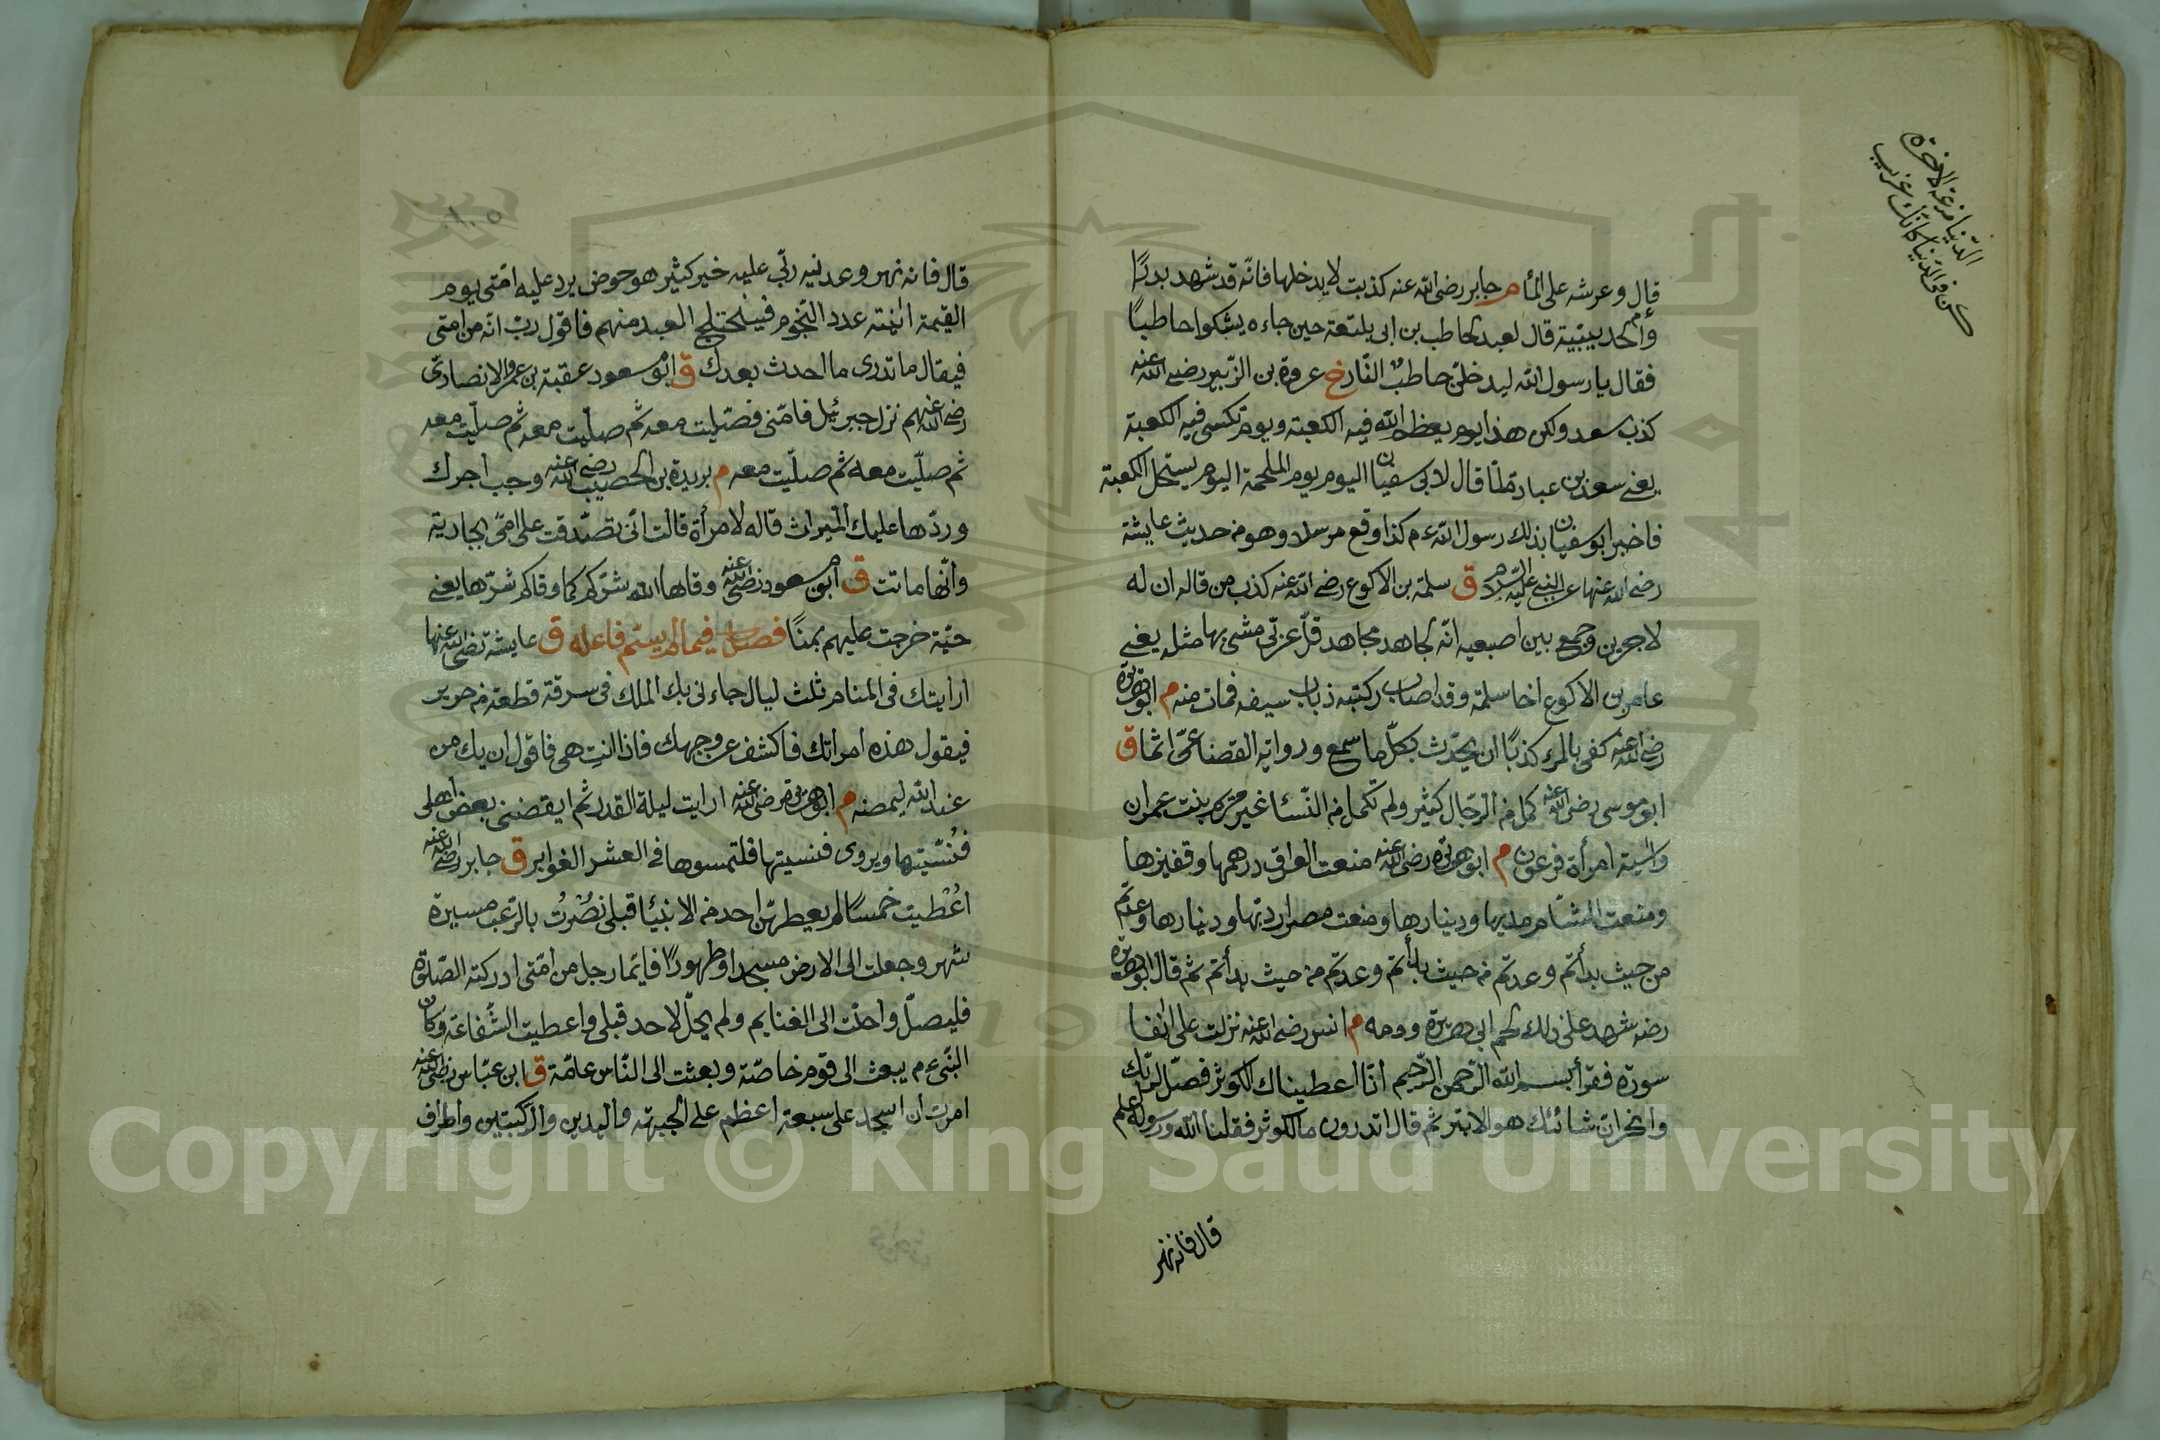 الدنيا مزرعة الاخرة
كن في الدنيا كانك غريب
قال وعرشه على الماء م جابر رضى الله عنه كذبت لا يدخلها فانه قد شهد بدرًا
والحديبية قال لعبد لحاطب بن ابى بلتعة حين جاءه يشكوا حاطبًا
فقال يا رسول الله ليدخلن حاطب النار خ عروة بن الزبير رضى الله عنه
كذب سعد ولكن هذا يوم يعظم الله فيه الكعبة ويوم تكسى فيه الكعبة
يعنى سعد بن عبادة لما قال لابى سفيان اليوم يوم الملحمة اليوم يستحل الكعبة
فاخبر ابو سفيان بذلك رسول الله ءم كذا وقع مرسلا وهو من حديث عايشة
رضى الله عنها عن النبى عليه السلام ق سلمة بن الاكوع رضى الله عنه كذب من قاله ان له
لاجرين وجمع بين اصبعيه انه لجاهد مجاهد قل عربى مشى بها مثله يعنى
عامر بن الاكوع اخا سلمة وقد اصاب ركبته ذباب سيفه فمات منه م ابو هريرة
رضى الله عنه كفى بالمرء كذبًا ان يحدث بكل ما سمع ورواية القضاعى اثما ق
ابو موسى رضى الله عنه كمل من الرجال كثير ولم تكمل من النساء غير مريم بنت عمران
واسية امرأة فرعون م ابو هريرة رضى الله عنه منعت العراق درهمها وقفيزها
ومنعت الشام مديها ودينارها ومنعت مصر اردبها ودينارها وعدتم
من حيث بدأتم وعدتم من حيث بدأتم وعدتم من حيث بدأتم ثم قال ابو هريرة
رضه شهد على ذلك لحم ابى هريرة ودمه م انس رضى الله عنه نزلت على انفا
سورة فقرأ بسم الله الرحمن الرحيم انا اعطيناك الكوثر فصل لربك
وانحر ان شانئك هو الابتر ثم قال اتدرون ما الكوثر فقلنا الله ورسوله اعلم
قال فانه نهر
١٠٥
قال فانه نهر وعدنيه ربى عليه خير كثير هو حوض يرد عليه امتى يوم
القيمة انيته عدد النجوم فيختلج العبد منهم فاقول رب انه من امتى
فيقال ما تدرى ما احدث بعدك ق ابو مسعود عقبة بن عمرو الانصارى
رضى الله عنهم نزل جبرئيل فامنى فصليت معه ثم صليت معه ثم صليت معه
ثم صليت معه ثم صليت معه م بريدة بن الحصيب رضى الله عنه وجب اجرك
وردها عليك الميراث قاله لامرأة قالت انى تصدقت على امى بجارية
وانها ماتت ق ابو مسعود رضى الله عنه وقاها الله شركم كما وقاكم شرها يعنى
حية خرجت عليهم بمنًا فصل فيما لم يسم فاعله ق عايشة رضى الله عنها
ارايتك فى المنام ثلث ليال جاءنى بك الملك فى سرقة قطعة من حرير
فيقول هذه امراتك فاكشف عن وجهك فاذا انت هى فاقول ان يك من
عند الله يمضه م ابو هريرة رضى الله عنه ارايت ليلة القدر ثم ايقضنى بعض اهلى
فنسيتها ويروى فنسيتها فلتمسوها فى العشر الغوابر ق جابر رضى الله عنه
اعطيت خمسًا لم يعطهن احد من الانبياء قبلى نصرت بالرعب مسيرة
شهر وجعلت الى الارض مسجدا وطهورًا فايما رجل من امتى ادركته الصلوة
فليصل واحلت الى الغنايم ولم يحل لاحد قبلى واعطيت الشفاعة وكان
النبى ءم يبعث الى قوم خاصة وبعثت الى الناس عامة ق ابن عباس رضى الله عنه
امرت ان اسجد على سبعة اعظم على الجبهة واليدين والركبتين واطراف
Copyright © King Saud University